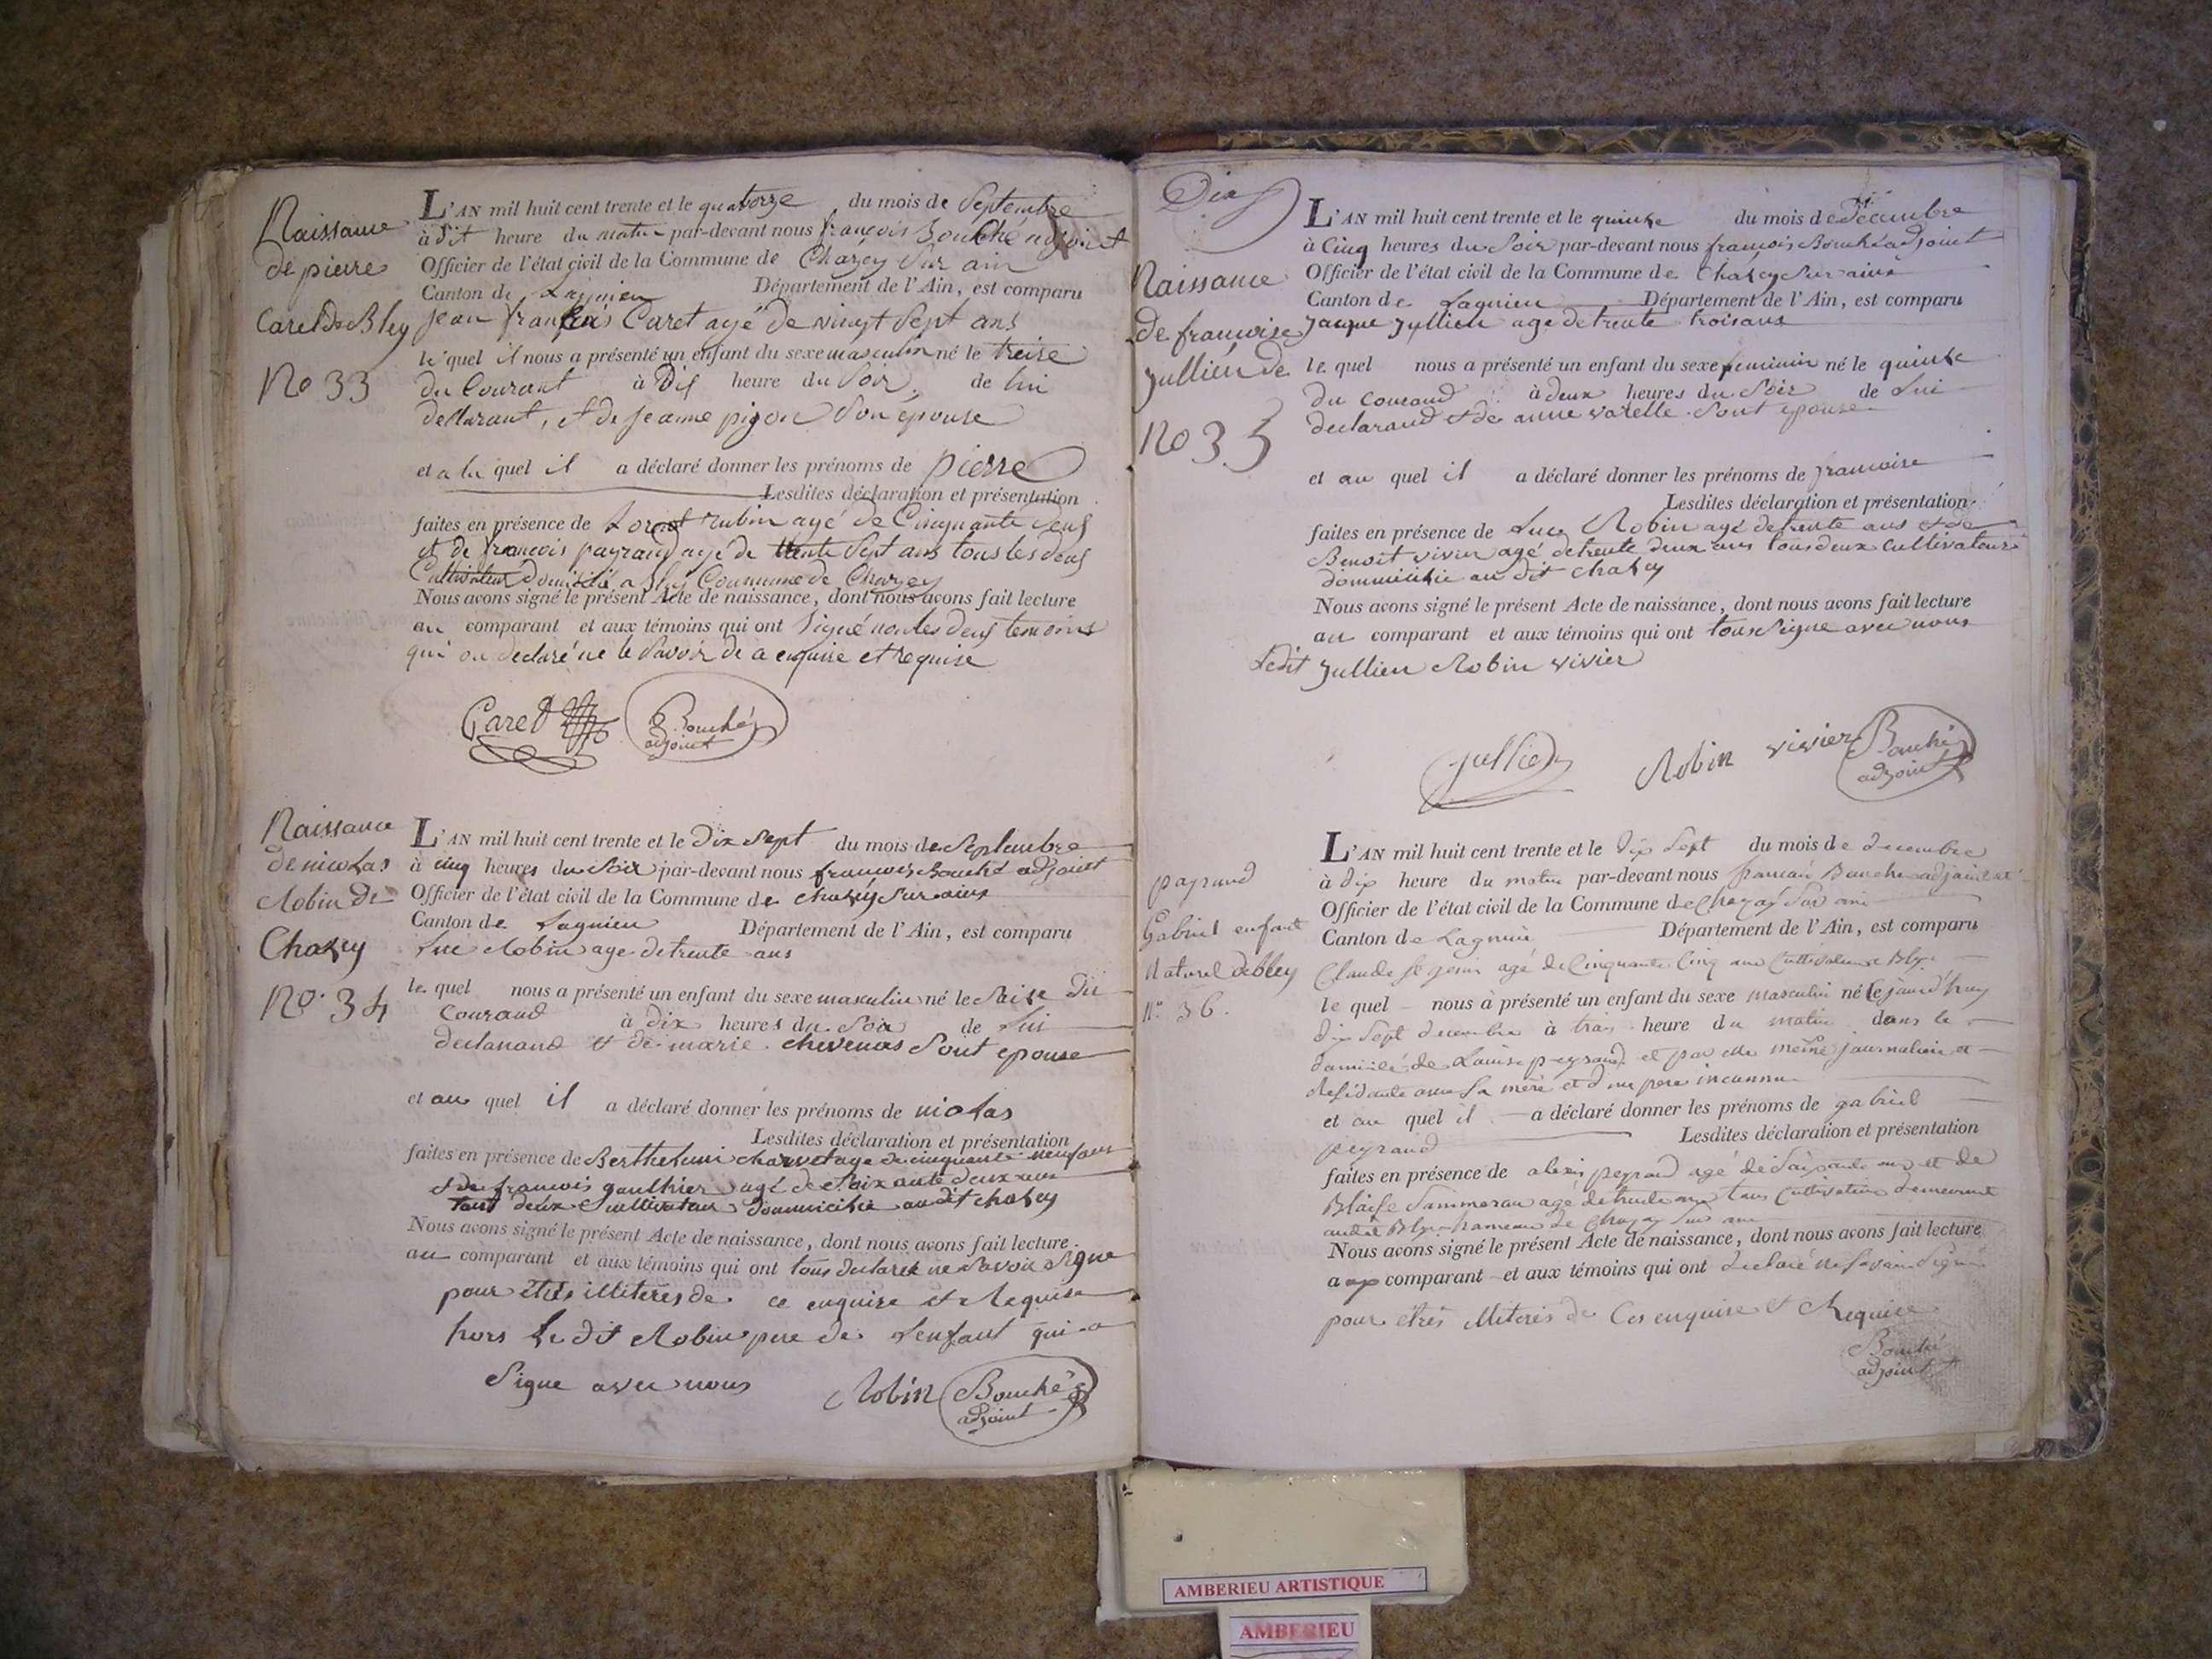 Naissance
de pierre
Caret de Bley
No 33
L'AN mil huit cent trente et le quatorze du mois de Septembre
à dix heure du matin par-devant nous françois Bouché adjoint
Officier de l'état civil de la Commune de Chazey Sur ain
Canton de Lagnieu Département de l'Ain, est comparu
Jean françois Caret agé de vingt Sept ans
le quel il nous a présenté un enfant du sexe masculin né le treize
du Courant à Dix heure du Soir, de lui
declarant, et de Jeanne pigon Son épouse
et a lu quel il a déclaré donner les prénoms de pierre
Lesdites déclaration et présentation
faites en présence de rubin agé de Cinquante deux
et de françois payraud agé de trente Sept ans tous les deux
Cultivateur domicilié a Bley Commune de Chazey
Nous avons signé le présent Acte de naissance, dont nous avons fait lecture
au comparant et aux témoins qui ont Signé non les deux temoins
qui on declaré ne le Savoir de a enquise et requise
Caret Bouché
adjoint
Naissance
de nicolas
Robin de
Chazey
No. 34
L'AN mil huit cent trente et le Dix Sept du mois de Septembre
à cinq heures du Soir par-devant nous françois Bouché adjoint
Officier de l'état civil de la Commune de chazey Sur ains
Canton de Lagnieu Département de l'Ain, est comparu
Luc Robin age de trente ans
le quel nous a présenté un enfant du sexe masculin né le Saise du
Courand à dix heures du Soir de Lui
declarand et de marie chevenas Sont epouse
et au quel il a déclaré donner les prénoms de niolas
Lesdites déclaration et présentation
faites en présence de Berthelemi charvet age de cinquante neuf ans
et de francois gaulthier agé de Soixante deux ans
tout deux Cuultivateur dommicilié audit chazey
Nous avons signé le présent Acte de naissance, dont nous avons fait lecture.
au comparant et aux témoins qui ont tous declarez ne Savoir Signe
pour êtres illiteres de ce enquise et Requise
hors Le dit Robin pere de Lenfant qui a
Signe avec nous Robin Bouché
adjoint
Dix
Naissance
de francoise
Jullien de
No 35
L'AN mil huit cent trente et le quinze du mois de Décembre
à Cinq heures du Soir par-devant nous francois Bouché adjoint
Officier de l'état civil de la Commune de Chazey Sur ains
Canton de Lagnieu Département de l'Ain, est comparu
Jacque Jullien age de trente trois ans
le quel nous a présenté un enfant du sexe feminin né le quinze
du courand à deux heures du Soir de Lui
declarand et de anne varelle Sont epouse
et au quel il a déclaré donner les prénoms de francoise
Lesdites déclaration et présentation
faites en présence de Luc Robin agé de trente ans et de
Benoit vivier agé de trente deux ans tous deux Cultivateur
dommicilié au dit chazey
Nous avons signé le présent Acte de naissance, dont nous avons fait lecture
au comparant et aux témoins qui ont tous Signe avec nous
Ledit Jullien Robin vivier
Jullien Robin vivier Bouché
adjoint
payraud
Gabriel enfant
Naturel de bley
No 36.
L'AN mil huit cent trente et le dix Sept du mois de decembre
à dix heure du matin par-devant nous Bouché adjoint
Officier de l'état civil de la Commune de Chazay Sur ain
Canton de Lagnieu Département de l'Ain, est comparu
Claude agé de Cinquante Cinq ans Cultivateur a Bley
le quel nous à présenté un enfant du sexe masculin né le jourd'huy
dix Sept decembre à trois heure du matin dans le
domicile de Louise peyraud et par elle même journaliere et
Résidante avec Sa mere et d'un pere inconnu
et au quel il a déclaré donner les prénoms de gabriel
peyraud Lesdites déclaration et présentation
faites en présence de alexis peyraud agé de Soixante ans et de
Blaise agé de trente ans tous Cultivateur demeurant
audit Bley hameau de Chazay Sur ain
Nous avons signé le présent Acte de naissance, dont nous avons fait lecture
a comparant et aux témoins qui ont declaré ne Savoir Signé
pour êtres illiterés de Ces enquise et Requise
Bouché
adjoint
AMBERIEU ARTISTIQUE
AMBERIEU